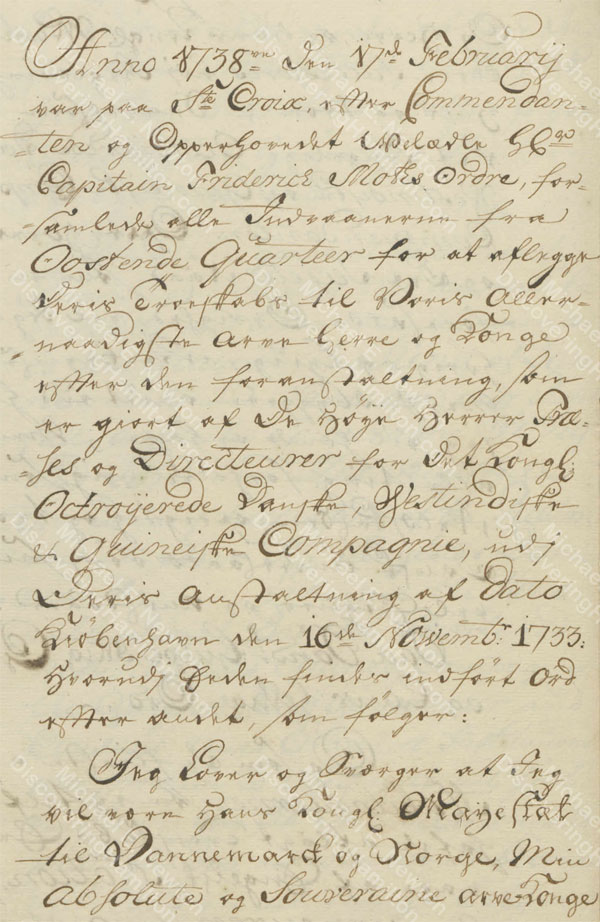 Anno 1738ve den 17de Februarij
var paa Ste Croix, efter Commendan-
-ten og Opperhovedet Velædle Hr
Capitain Friderich Moths Ordre, for-
-samlede alle Indvaanerne fra
Oostende Quarteer for at aflegge
Deris Troeskabs til Voris Aller-
-naadigste arve herre og Konge
efter den foranstaltning, som
er giort af De Høye Herrer Præ-
-ses og Directeurer for Det Kongl:
Octroyerede Danske, Westindiske
& Guineiske Compagnie, udj
Deris anstaltning af Dato
Kiöbenhavn den 16de Novembr. 1733:
Hvorudj Eeden findes indfört Ord
efter andet, som fölger:
Jeg Lover og Sværger at Jeg
vil være Hans Kongl: Mayestæt
til Dannemarck og Norge, Min
absolute og Souveraine arve Konge